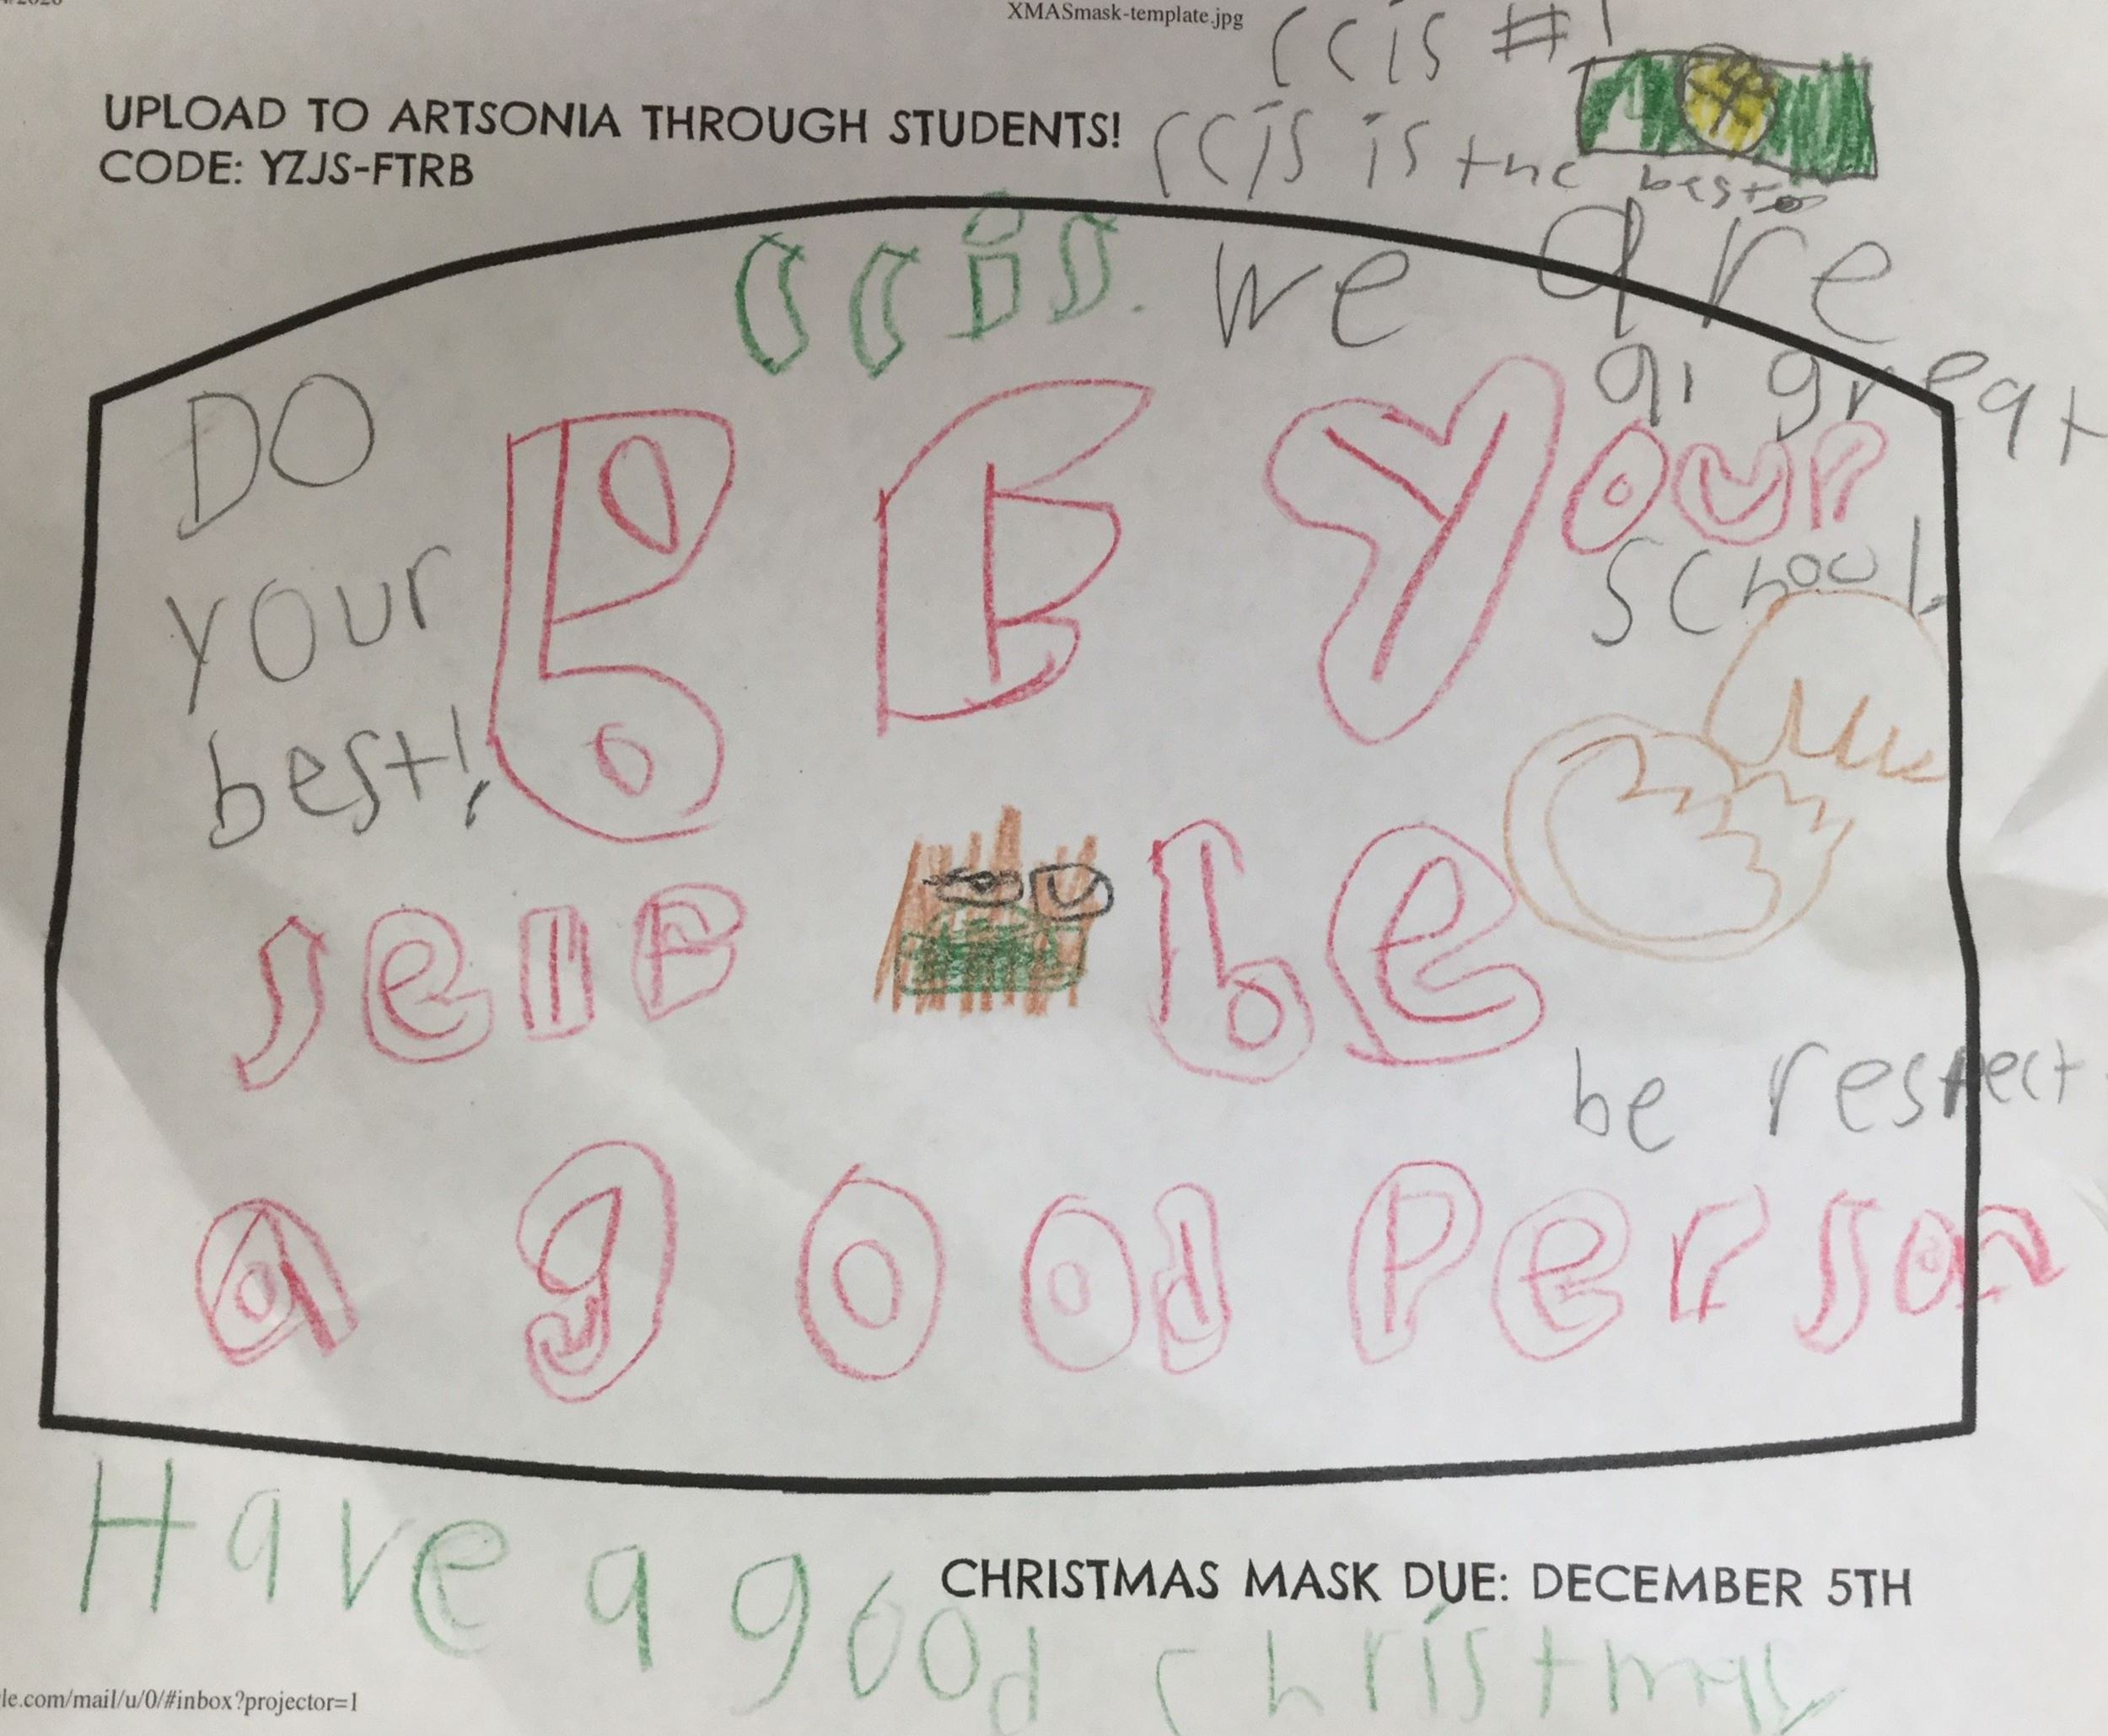 XMASmask-template.jpg
ccis #1
UPLOAD TO ARTSONIA THROUGH STUDENTS!
CODE: YZJS-FTRB
ccis is the best
ccis. we are
a great
school.
DO
your
best!
BE Your
self be
be respect
a good person
Have a good christmas
CHRISTMAS MASK DUE: DECEMBER 5TH
le.com/mail/u/0/#inbox?projector=1